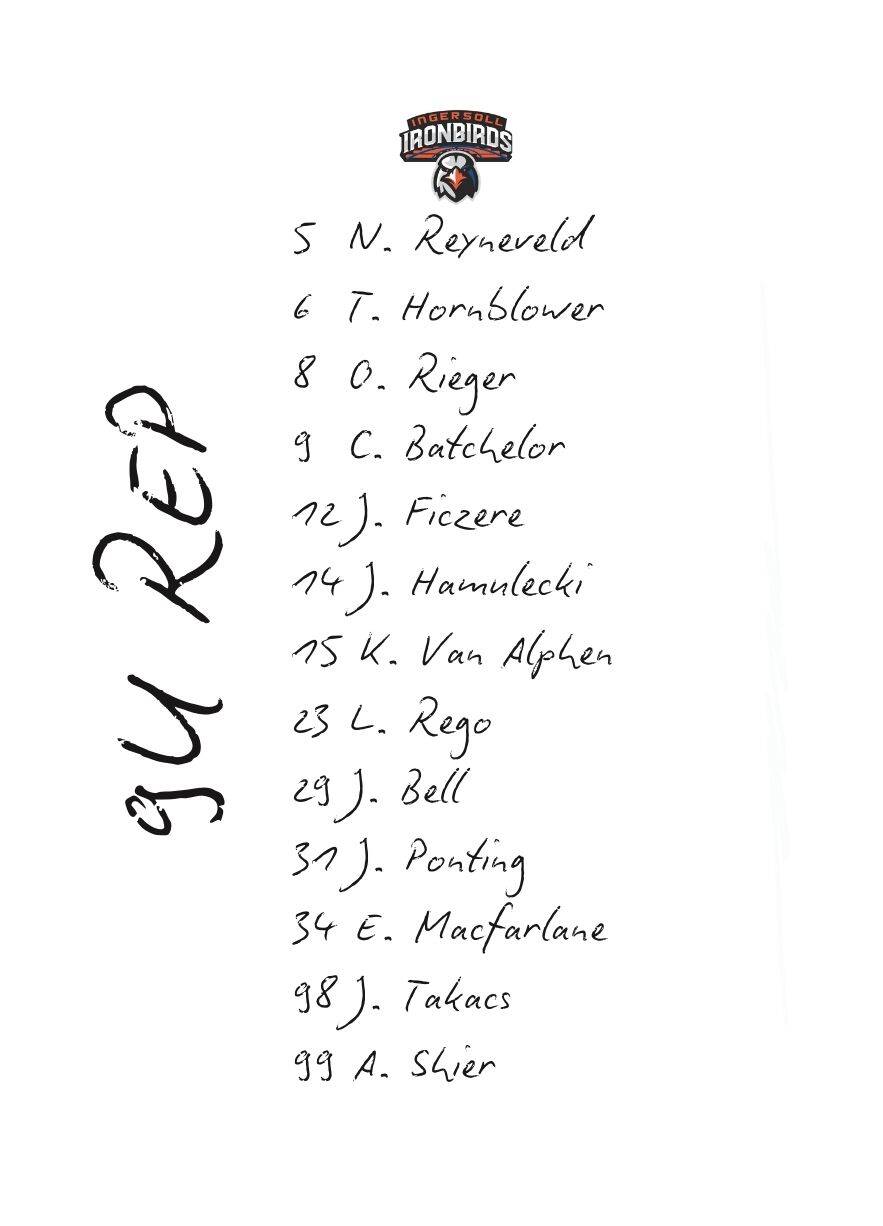 INGERSOLL
IRONBIRDS
5 N. Reyneveld
6 T. Hornblower
8 O. Rieger
9 C. Batchelor
12 J. Ficzere
14 J. Hamulecki
15 K. Van Alphen
23 L. Rego
29 J. Bell
31 J. Ponting
34 E. Macfarlane
98 J. Takacs
99 A. Shier
9U REP